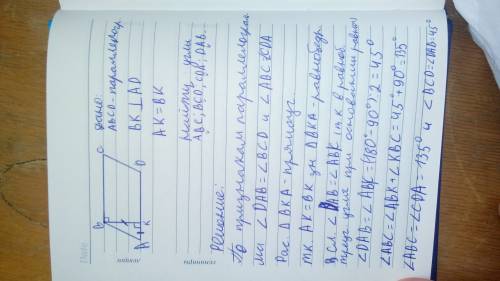 Date
B C
A K D
Дано:
ABCD - параллелогр.
BK ⊥ AD
AK = BK
Найти углы
ABC, BCD, CDA, DAB.
Решение:
По признакам параллелограм
ма ∠DAB = ∠BCD и ∠ABC = ∠CDA
Рас. △BKA - прямоуг.
т.к. AK = BK зн △BKA - равнобедр.
В.сл. ∠DAB = ∠ABK (т.к в равноб.
треуг. углы при основании равны)
∠DAB = ∠ABK = (180° - 90°) : 2 = 45°
∠ABC = ∠ABK + ∠KBC = 45° + 90° = 135°
∠ABC = ∠CDA = 135° и ∠BCD = ∠DAB = 45°